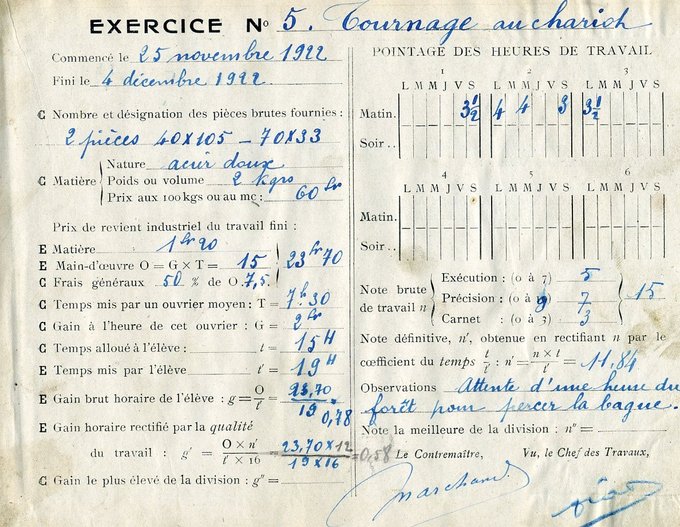 EXERCICE No 5. Tournage au chariot
Commencé le 25 novembre 1922
Fini le 4 décembre 1922.
C Nombre et désignation des pièces brutes fournies :
2 pièces 40x105 - 70x33
C Matière
Nature acier doux
Poids ou volume 2 kgrs
Prix aux 100 kgs ou au mc : 60 fr
Prix de revient industriel du travail fini :
E Matière 1 fr 20
E Main-d'œuvre O = G × T = 15
C Frais généraux 50 % de O 7,5
23 fr 70
C Temps mis par un ouvrier moyen : T = 7h.30
C Gain à l'heure de cet ouvrier : G = 2 fr
C Temps alloué à l'élève : t = 15 H
E Temps mis par l'élève t' = 19 H
E Gain brut horaire de l'élève : g = O/t' = 23,70/19 = 0,78
E Gain horaire rectifié par la qualité
du travail : g' = O × n'/t' × 16 = 23,70 x 12/19 x 16 = 0,58
C Gain le plus élevé de la division : g" =
POINTAGE DES HEURES DE TRAVAIL
1 2 3
L M M J V S L M M J V S L M M J V S
Matin. 3 1/2 4 4 3 3 1/2
Soir ..
4 5 6
L M M J V S L M M J V S L M M J V S
Matin.
Soir ..
Note brute de travail n
Exécution : (0 à 7) 5
Précision : (0 à 9) 7
Carnet : (0 à 3) 3
15
Note définitive, n', obtenue en rectifiant n par le
cœfficient du temps t/t' : n' = n × t/t' = 11,84
Observations Attente d'une heure du
forêt pour percer la bague.
Note la meilleure de la division : n" =
Le Contremaître, Vu, le Chef des Travaux,
Marchand